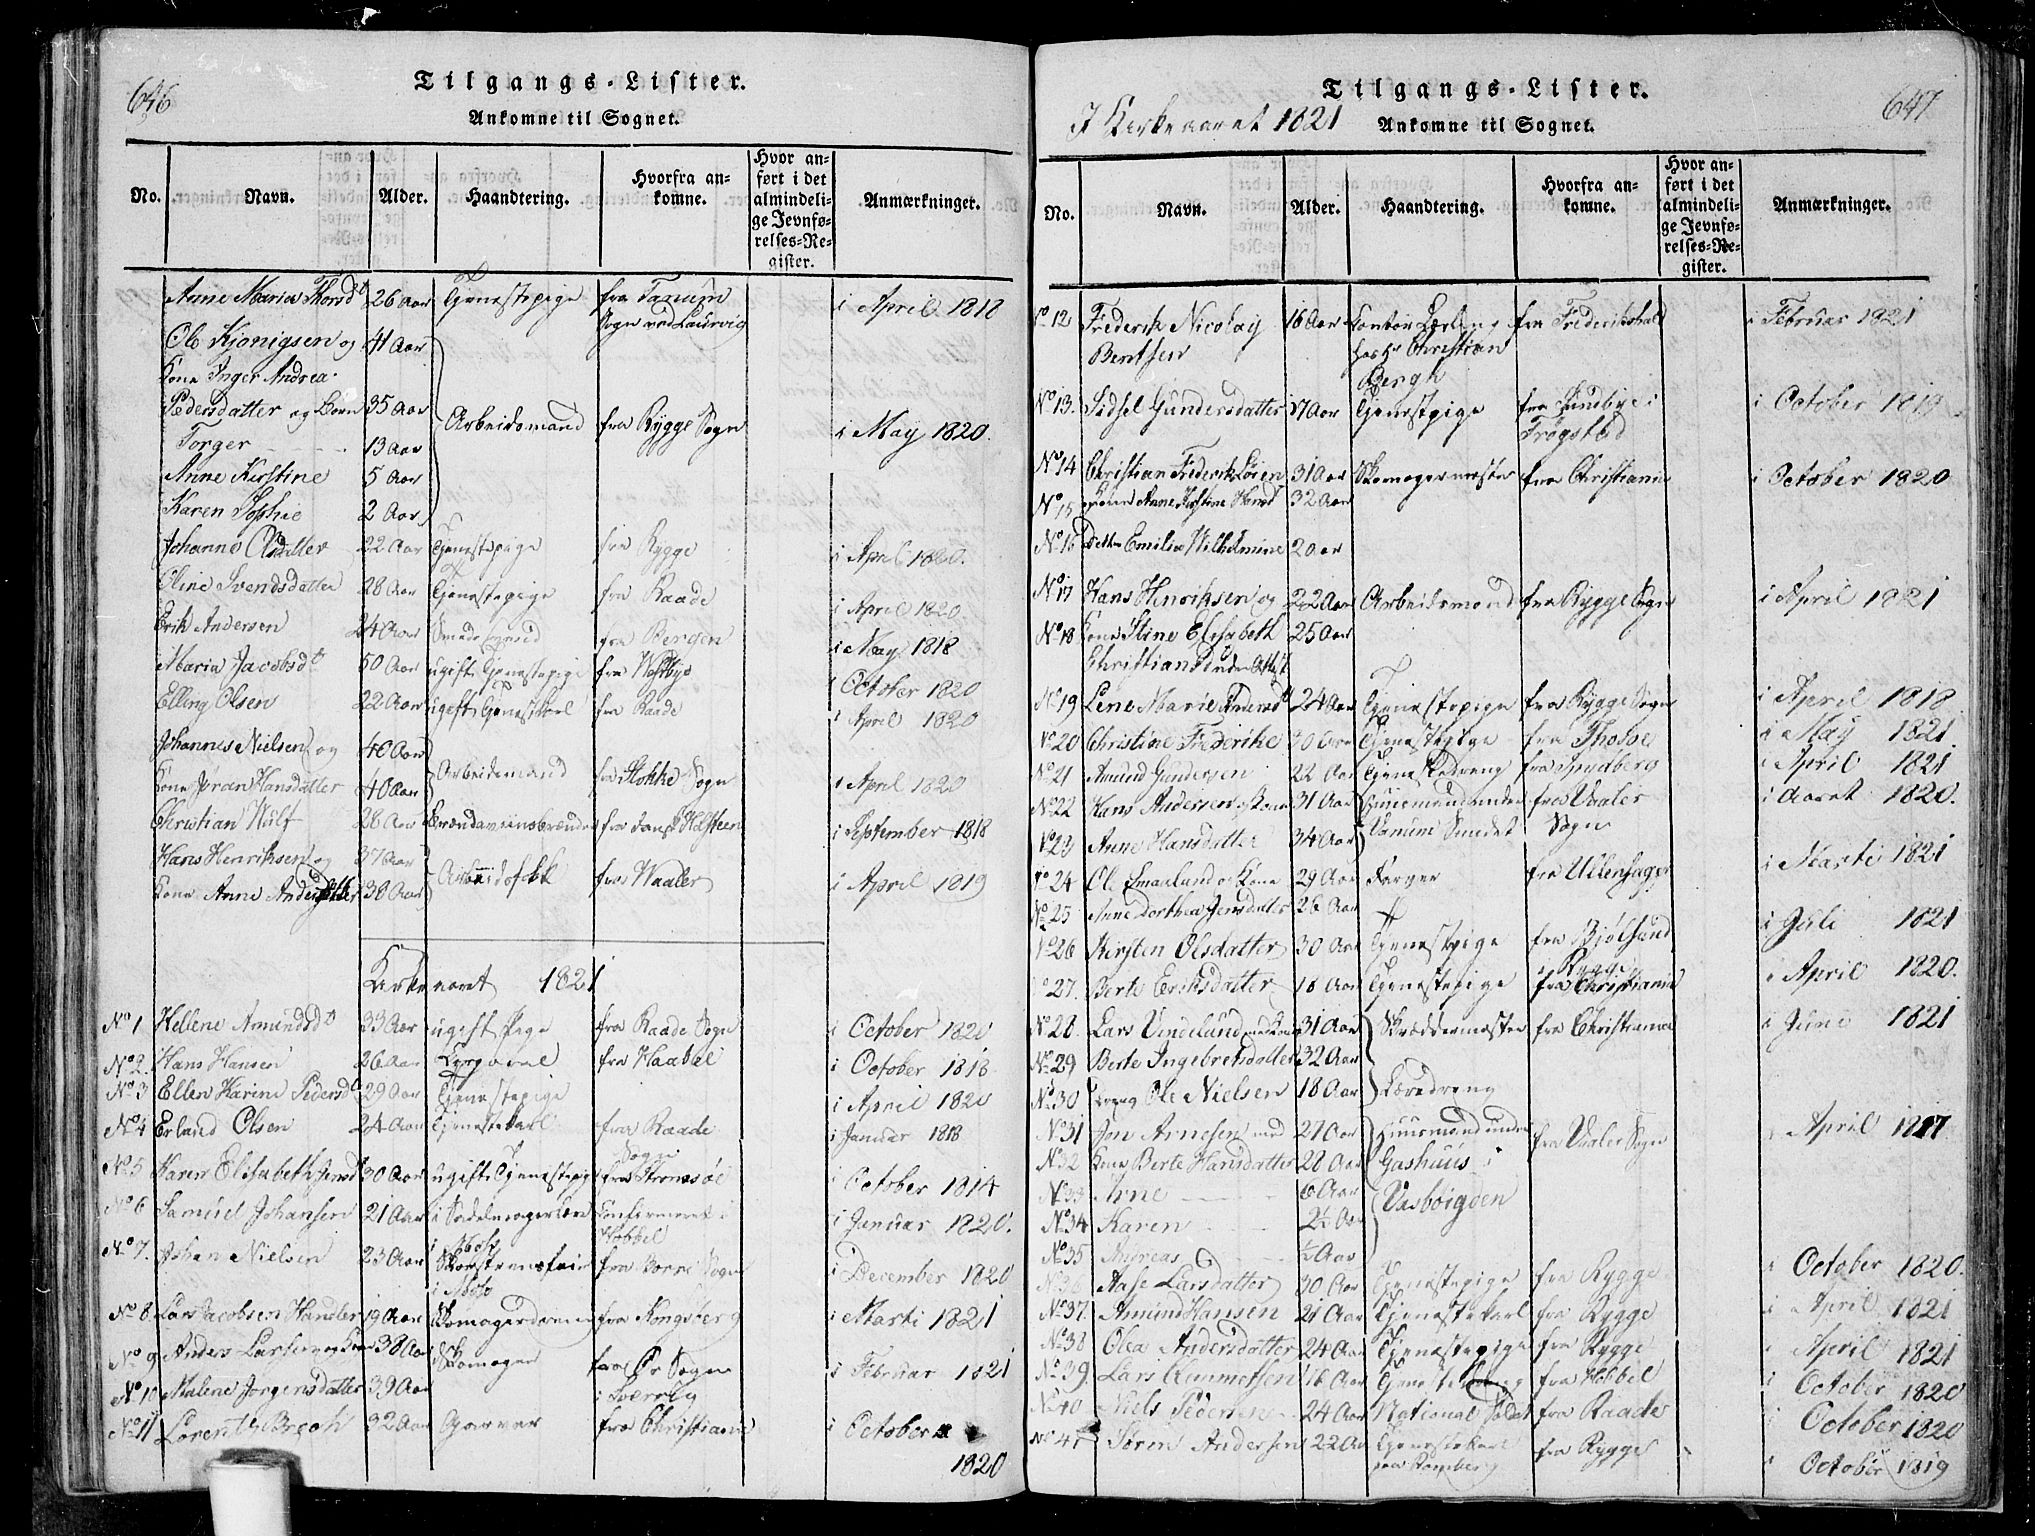 646
Tilgangs-Lister.
Ankomne til Sognet.
No. Navn. Alder. Haandtering. Hvorfra ankomne. Hvor anført i det almindelige Jevnførelses-Register. Anmærkninger.
Anne Maria Thorsd 26 Aar Tjenestepige fra Tanum Sogn ved Laurvig i April 1818
Ole Kjønigsen og 41 Aar
Kone Inger Andrea
Pedersdatter og Børn 35 Aar Arbeidsmand fra Rygge Sogn i May 1820.
Torger 13 Aar
Anne Kirstine 5 Aar
Karen Sophie 2 Aar
Johanne Olsdatter 22 Aar Tjenestepige fra Rygge i April 1820.
Oline Svendsdatter 28 Aar Tjenestepige fra Raade i April 1820
Erik Andersen 24 Aar Smedesvend fra Bergen i May 1818
Maria Jacobsd 50 Aar ugift Tjenestepige fra Westbye i October 1820
Elling Olsen 22 Aar ugift Tjenestekarl fra Raade i April 1820
Johannes Nielsen og 40 Aar
Kone Jøran Hansdatter 40 Aar Arbeidsmand fra Stokke Sogn i April 1820
Christian Wulf 28 Aar Brændeviinsbrænder fra Dansk Holsteen i September 1818
Hans Henriksen og 37 Aar
Kone Anne Andersdatter 38 Aar Arbeidsfolk fra Waaler i April 1819
Kirke aaret 1821
No 1 Hellene Amundsd 33 Aar ugift Pige fra Raade Sogn i October 1820
No 2. Hans Hansen 26 Aar fra Haabøl i October 1818
No 3 Ellen Karine Pedersd 29 Aar Tjenestepige i April 1820
No 4 Erland Olsen 24 Aar Tjenestekarl fra Raade Sogn i Januar 1818
No 5 Karen Elisabeth Jensd 30 Aar ugift Tjenestepige fra Strømsøe i October 1814
No 6 Samuel Johansen 21 Aar i Sadelmagerlære i Moss Confirmeret i Hobbel i Januar 1820.
No 7. Johan Nielsen 23 Aar Skorsteensfeier i Moss fra Borre Sogn i December 1820
No 8. Lars Jacobsen Handler 19 Aar Skomagerdreng fra Kongsberg i Marti 1821
No 9 Anders Larsen og Kone 38 Aar Skomager fra Ør Sogn i Sverrig i Februar 1821
No 10 Malene Jorgensdatter 39 Aar
No 11 Lorentz Brech 32 Aar Garver fra Christiania i October 1820
647
Tilgangs-Lister.
I Kirkeaaret 1821 Ankomne til Sognet.
No. Navn. Alder. Haandtering. Hvorfra ankomne. Hvor anført i det almindelige Jevnførelses-Register. Anmærkninger.
No 12 Frederik Nicolay Bentsen 18 Aar Contoir Lærling hos Hr Christian Bergh fra Frederikshald i Februar 1821
No 13. Sidsel Gundersdatter 17 Aar Tjenestpige fra Sundbye i Trøgsted i October 1819
No 14 Christian Frederik Løien 31 Aar Skomagermester fra Christiania i October 1820
No 15 Kone Anne Kirstine Hansd 32 Aar
No 16 Datter Emilia Wilhelmine 2 Aar
No 17 Hans Henriksen og 22 Aar Arbeidsmand fra Rygge Sogn i April 1821
No 18 Kone Stine Elisabeth 25 Aar
No 19 Lene Marie Andersd 24 Aar Tjenestepige fra Rygge Sogn i April 1818
No 20 Christine Frederike 30 Aar Tjenestepige fra Thoten i May 1821
No 21 Amund Gundersen 22 Aar Tjenestedreng fra Spydberg i April 1821
No 22 Hans Andersen og Kone 31 Aar Huusmand under fra Vaaler Sogn i Aaret 1820.
No 23 Anne Hansdatter 34 Aar Vanum Sundet
No 24 Ole Emanland og Kone 29 Aar Farver fra Ullensager i Marti 1821
No 25 Anne Dorthea Jensdatter 26 Aar
No 26 Kirsten Olsdatter 30 Aar Tjenestpige fra Bjølsund i Rygge i Juli 1821
No 27. Berte Eriksdatter 18 Aar Tjenestepige fra Christiania i April 1820.
No 28. Lars Vindelund med Kone 31 Aar Skræddermester fra Christiania i Juni 1821
No 29 Berte Ingebretsdatter 32 Aar
No 30 Dreng Ole Nielsen 18 Aar Læredreng
No 31 Jon Arnesen med 27 Aar Huusmand under fra Vaaler Sogn i April 1817
No 32 Kone Berte Hansdatter 28 Aar Gashuus i
No 33 Arne 6 Aar Vasbøigden
No 34 Karen 2½ Aar
No 35 Andreas ½ Aar
No 36 Aase Larsdatter 30 Aar Tjenestepige fra Rygge i October 1820.
No 37. Amund Hansen 21 Aar Tjenestekarl fra Rygge i April 1821
No 38 Olea Andersdatter 24 Aar Tjenestepige fra Rygge i April 1821
No 39 Lars Gummesen 16 Aar Tjenestedreng fra Hobbel i October 1820
No 40 Niels Pedersen 24 Aar National Soldat fra Raade i October 1820
No 41 Søren Andersen 22 Aar Tjenestekarl paa Ramberg fra Rygge i October 1819